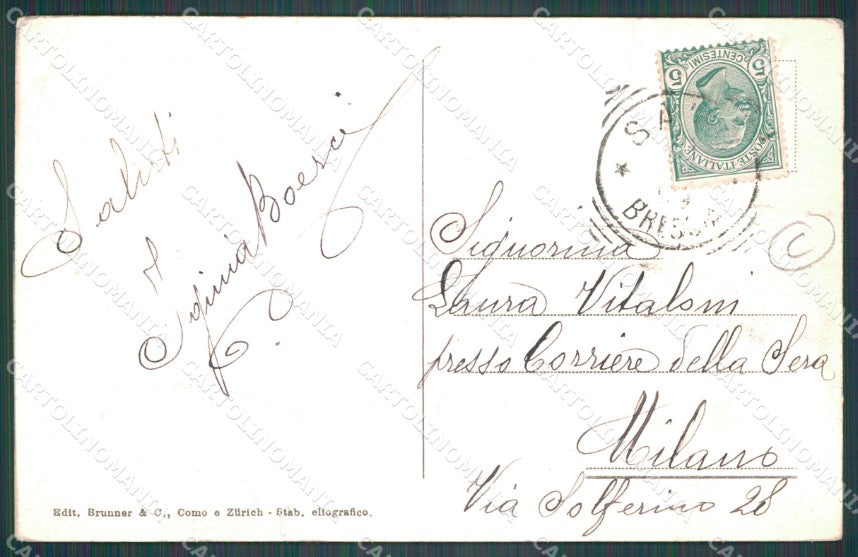 Saluti
Iginia Boesci
5 CENTESIMI 5
POSTE ITALIANE
BRESCIA
Signorina
Laura Vitaloni
presso Corriere della Sera
Milano
Via Solferino 28
Edit. Brunner & C., Como e Zürich - Stab. eliografico.
CARTOLINOMANIA